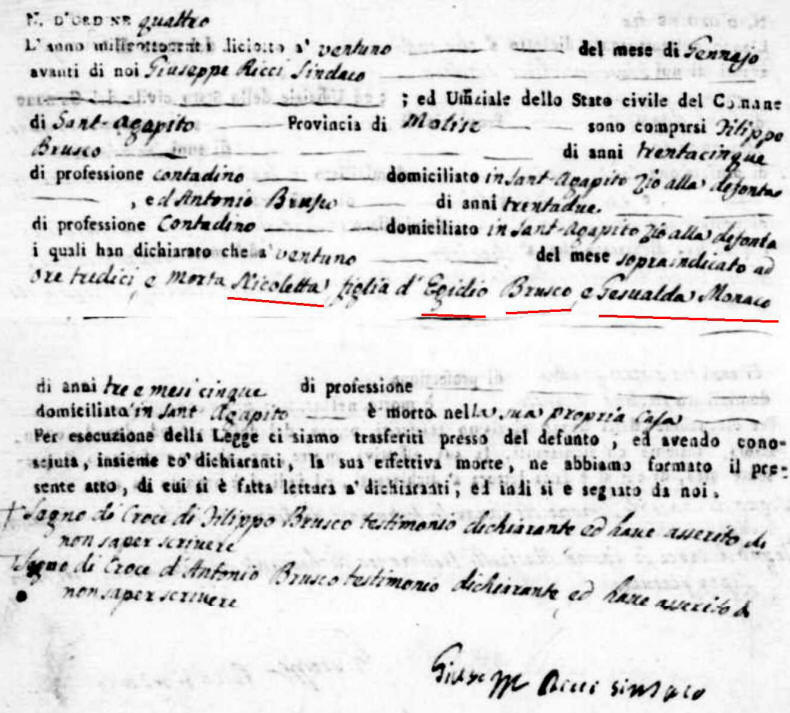 N. D'ORDINE quattro
L'anno milleottocento diciotto a' ventuno del mese di Gennajo
avanti di noi Giuseppe Ricci Sindaco
; ed Uffiziale dello Stato civile del Comune
di Sant-Agapito Provincia di Molise sono comparsi Filippo
Brusco di anni trentacinque
di professione contadino domiciliato in Sant-Agapito Zio alla defonta
, ed Antonio Brusco di anni trentadue
di professione Contadino domiciliato in Sant-Agapito Zio alla defonta
i quali han dichiarato che a' ventuno del mese sopraindicato ad
ore tredici e morta Nicoletta figlia d' Egidio Brusco e Gesualda Monaco
di anni tre e mesi cinque di professione
domiciliata in Sant Agapito è morto nella sua propria Casa
Per esecuzione della Legge ci siamo trasferiti presso del defunto, ed avendo cono-
sciuta, insieme co' dichiaranti, la sua effettiva morte, ne abbiamo formato il pre-
sente atto, di cui si è fatta lettura a' dichiaranti; ed indi si è segnato da noi.
† Segno di Croci di Filippo Brusco testimonio dichiarante ed have asserito di
non saper scrivere
† Segno di Croce d'Antonio Brusco testimonio dichiarante ed have asserito di
non saper scrivere
Ricci Sindaco